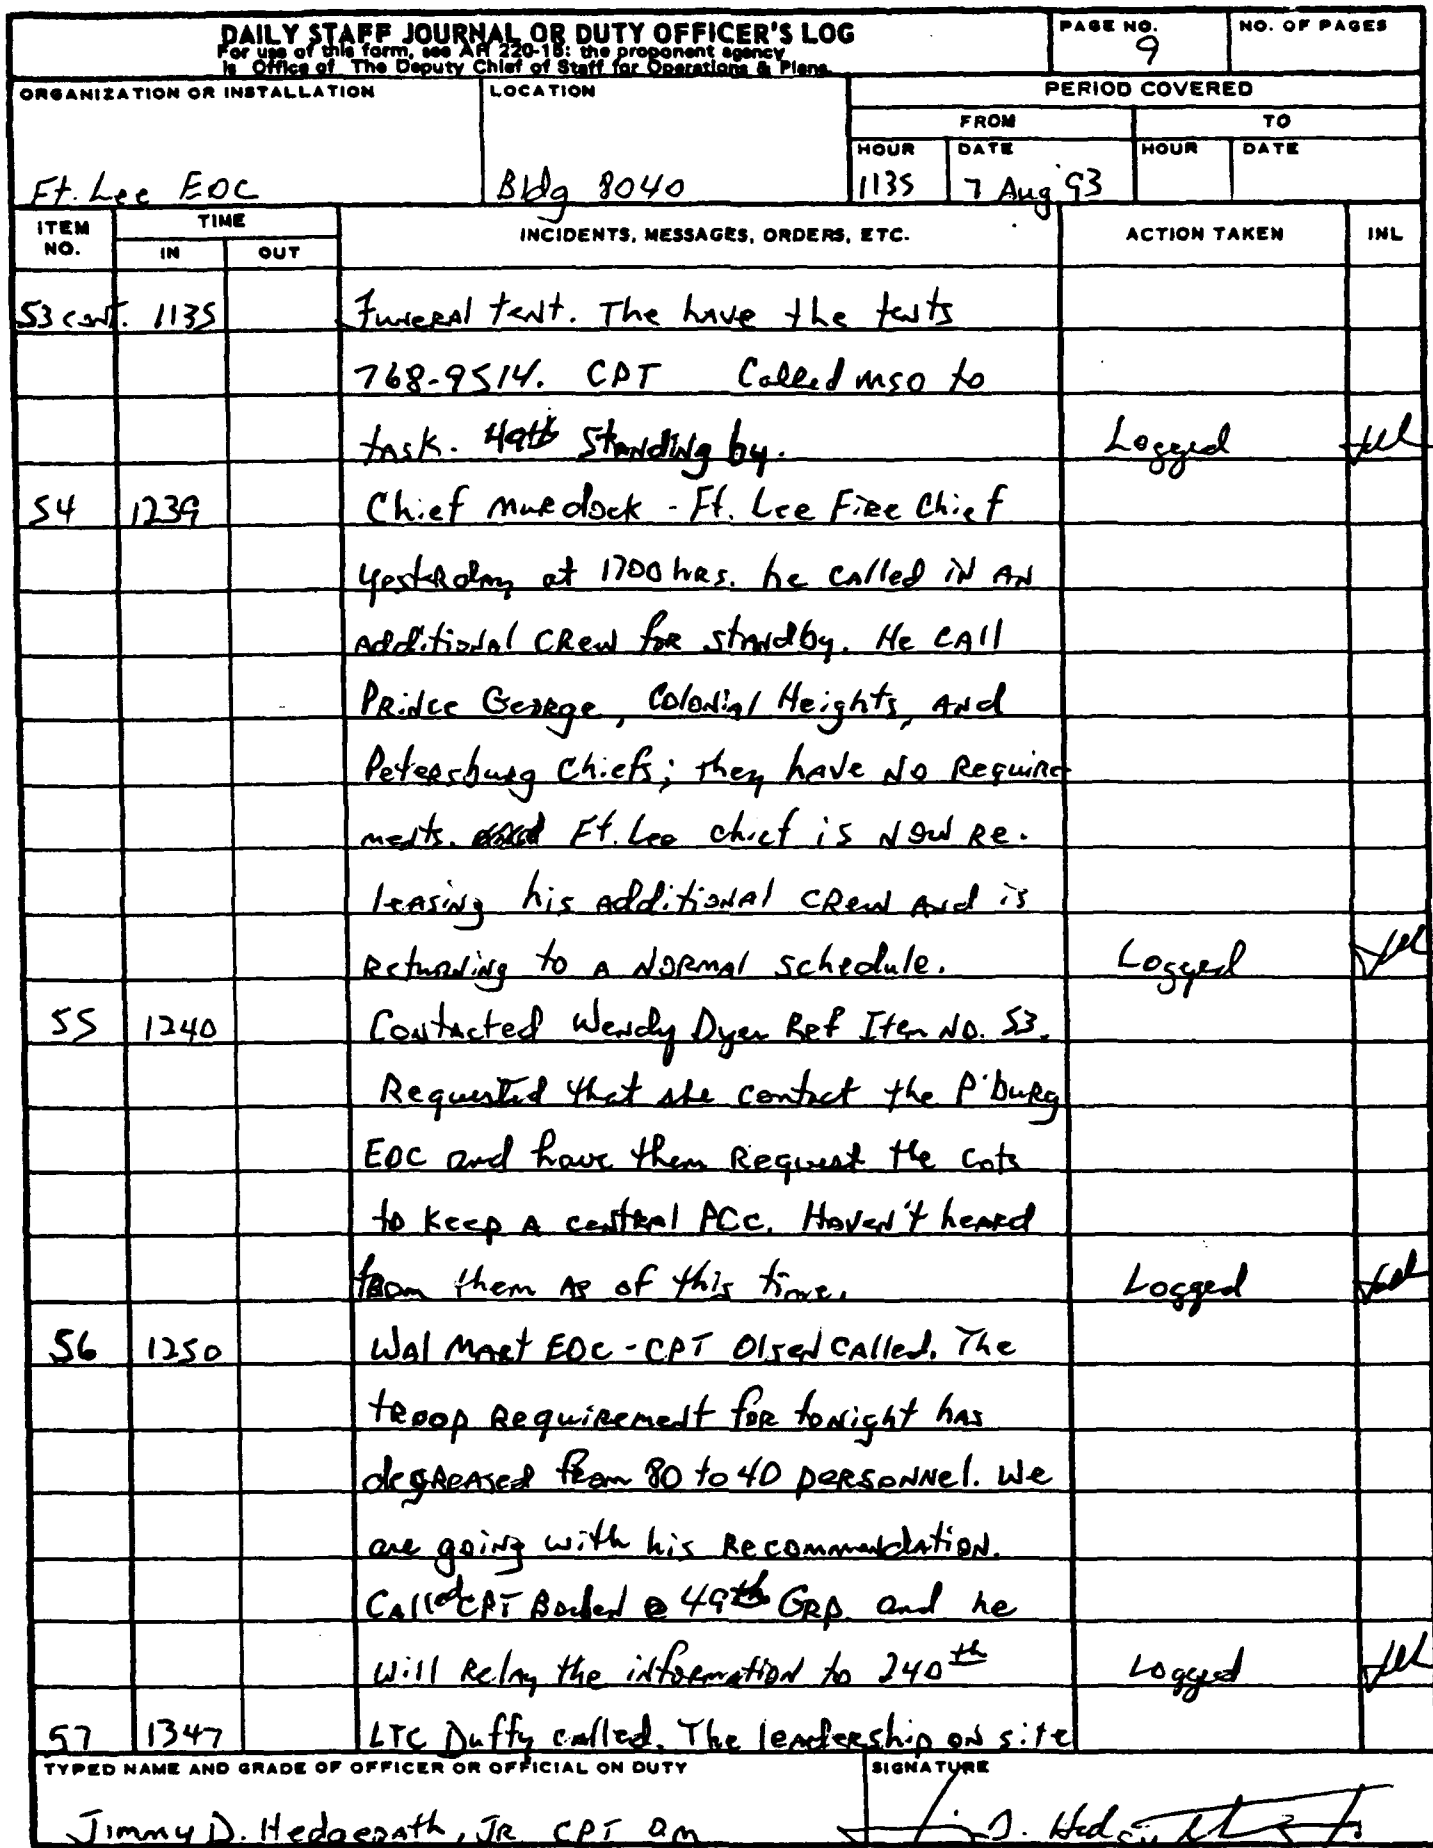 DAILY STAFF JOURNAL OR DUTY OFFICER'S LOG
For use of this form, see AR 220-15; the proponent agency
is Office of The Deputy Chief of Staff for Operations & Plans.
PAGE NO.
9
NO. OF PAGES
ORGANIZATION OR INSTALLATION
Ft. Lee EOC
LOCATION
Bldg 8040
PERIOD COVERED
FROM
TO
HOUR DATE HOUR DATE
1135 7 Aug 93
ITEM NO. TIME IN OUT INCIDENTS, MESSAGES, ORDERS, ETC. ACTION TAKEN INL
53 cont. 1135 Funeral tent. The have the tents
768-9514. CPT Called MSO to
task. 49th Standing by. Logged
54 1239 Chief Murdock - Ft. Lee Fire Chief
yesterday at 1700 hrs. he called in an
additional crew for standby. He call
Prince George, Colonial Heights, and
Petersburg Chiefs; they have no require
ments. Ft. Lee chief is now re-
leasing his additional crew and is
returning to a normal schedule. Logged
55 1240 Contacted Wendy Dyer Ref Item No. 53.
Requested that she contact the P'Burg
EOC and have them request the cots
to keep a central POC. Haven't heard
from them as of this time. Logged
56 1250 Wal Mart EOC - CPT Olsen called. The
troop requirement for tonight has
degreased from 80 to 40 personnel. We
are going with his recommendation.
Called CPT @ 49th Grp. and he
will relay the information to 240th Logged
57 1347 LTC Duffy called. The leadership on site
TYPED NAME AND GRADE OF OFFICER OR OFFICIAL ON DUTY
Jimmy D. Hedgepath, JR CPT QM
SIGNATURE